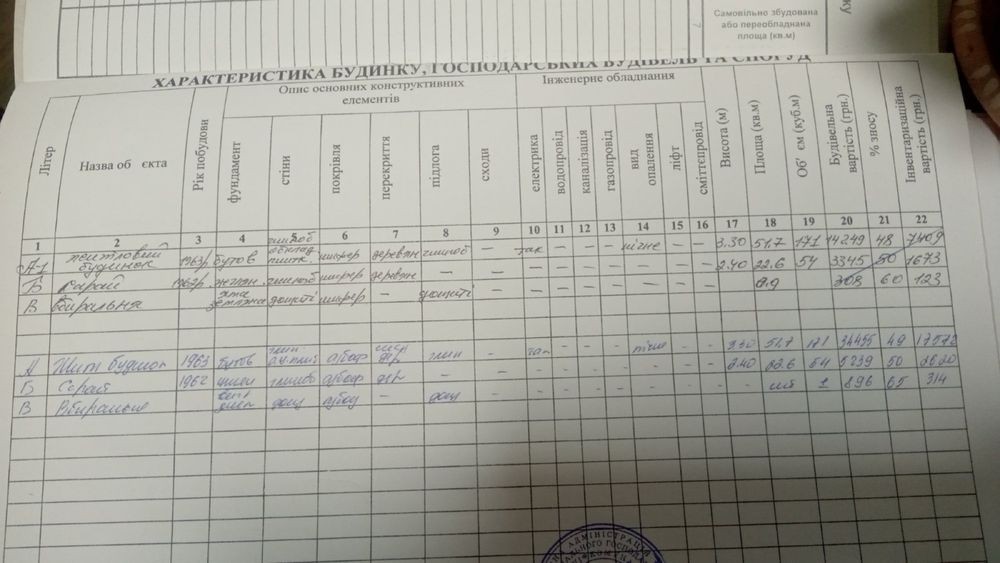 Самовільно збудована
або переобладнана
площа (кв.м)
7
ХАРАКТЕРИСТИКА БУДИНКУ, ГОСПОДАРСЬКИХ БУДІВЕЛЬ ТА СПОРУД
Літер
Назва об єкта
Рік побудови
Опис основних конструктивних
елементів
фундамент
стіни
покрівля
перекриття
підлога
сходи
Інженерне обладнання
електрика
водопровід
каналізація
газопровід
вид
опалення
ліфт
сміттєпровід
Висота (м)
Площа (кв.м)
Об' єм (куб.м)
Будівельна
вартість (грн.)
% зносу
Інвентаризаційна
вартість (грн.)
1 2 3 4 5 6 7 8 9 10 11 12 13 14 15 16 17 18 19 20 21 22
А-1 житловий будинок 1963р. бутов шифер деревян глиноб — так — — — пічне — — 3.30 51,7 171 14249 48 7409
Б Сарай 1962р. глиноб шифер деревян — — — — — — — — — 2.40 22.6 54 3345 50 1673
В Вбиральня дощаті шифер — дощаті 0.9 308 60 123
А Житл будинок 1963 бутов а/баф глин - - - - - - 3.30 51,7 171 34455 49 17572
Б Сарай 1962 глиноб а/баф дер - - - - - - - - - 2.40 22.6 54 5239 50 2620
В Вбиральня дощ - дощ - - - - - - - - 1 896 65 314